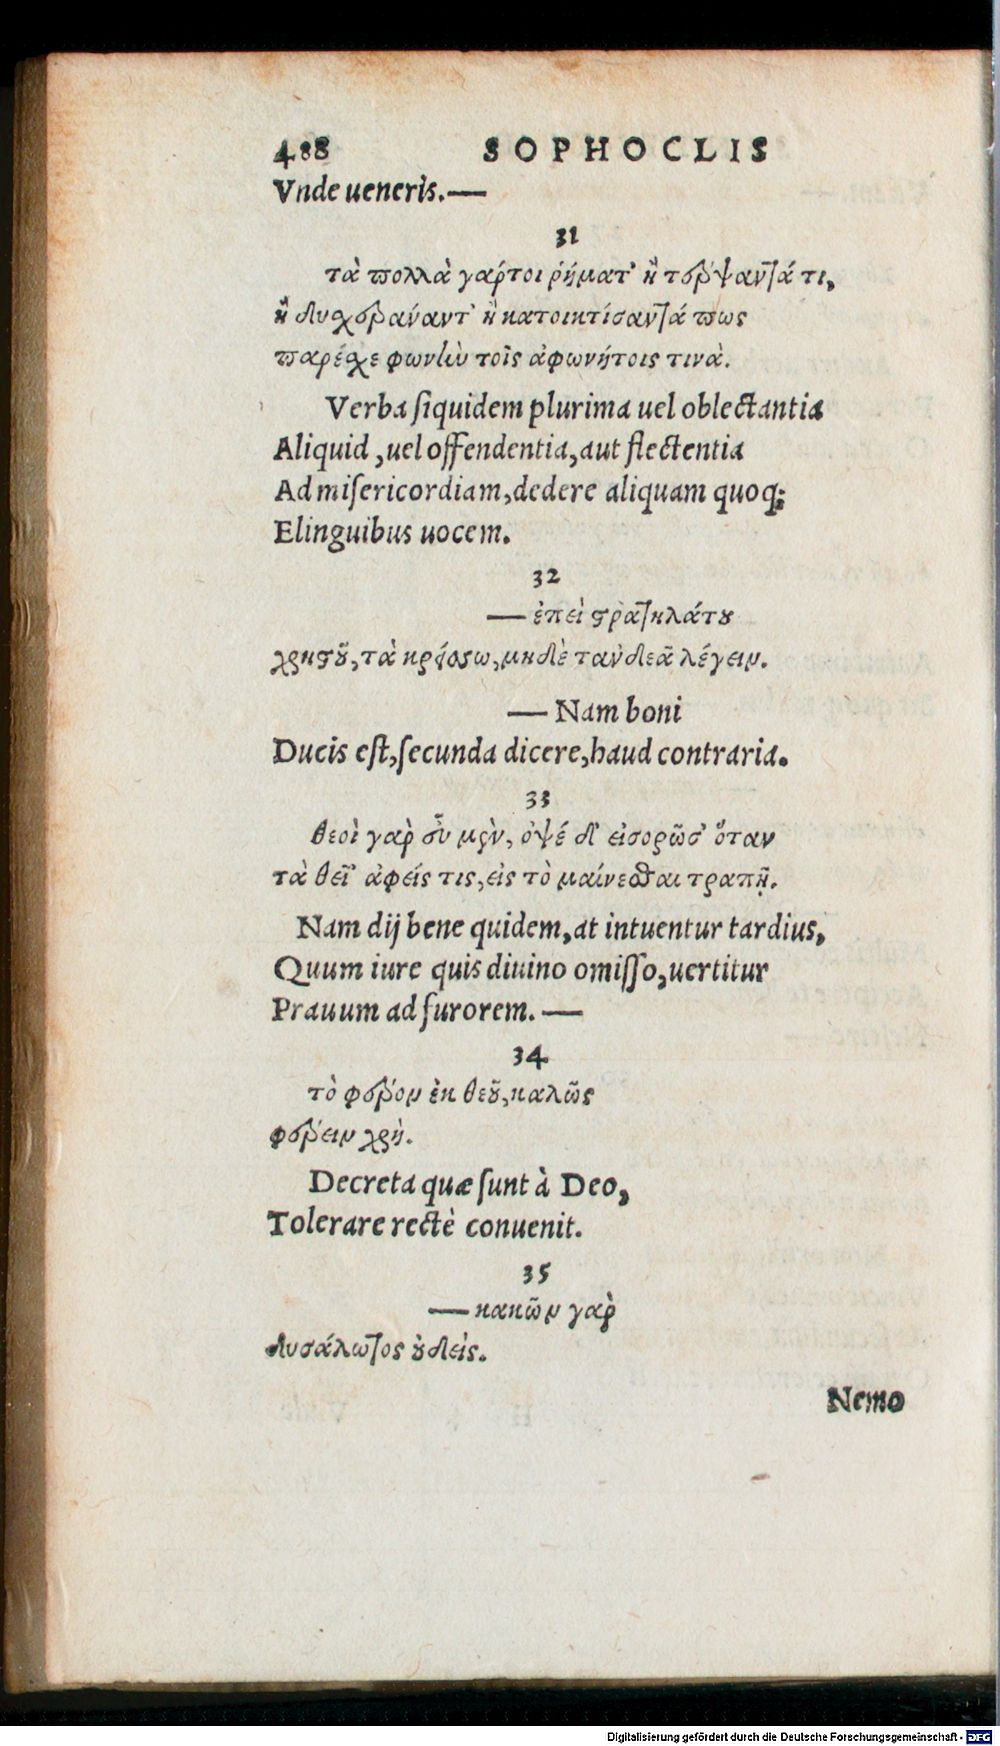 488 SOPHOCLIS
Vnde ueneris.—
31
τὰ πολλὰ γάρτοι ῥήματ' ἢ τέρψαντά τι,
ἢ δυσχεράναντ' ἢ κατοικτίσαντά πως
παρέσχε φωνὴν τοῖς ἀφωνήτοις τινὰ.
Verba ſiquidem plurima uel oblectantia
Aliquid, uel offendentia, aut flectentia
Ad miſericordiam, dedere aliquam quoq;
Elinguibus uocem.
32
— ἐπεὶ στρατηλάτου
χρηστοῦ, τὰ κρείσσω, μηδὲ τἀνδεᾶ λέγειν.
— Nam boni
Ducis eſt, ſecunda dicere, haud contraria.
33
θεοὶ γὰρ εὖ μὲν, ὀψέ δ' εἰσορῶσ' ὅταν
τὰ θεῖ' ἀφείς τις, εἰς τὸ μαίνεσθαι τραπῇ.
Nam dij bene quidem, at intuentur tardius,
Quum iure quis diuino omiſſo, uertitur
Prauum ad furorem.—
34
τὸ φέρον ἐκ θεοῦ, καλῶς
φέρειν χρή.
Decreta quæ ſunt à Deo,
Tolerare rectè conuenit.
35
— κακῶν γὰρ
δυσάλωτος οὐδείς.
Nemo
Digitalisierung gefördert durch die Deutsche Forschungsgemeinschaft - DFG